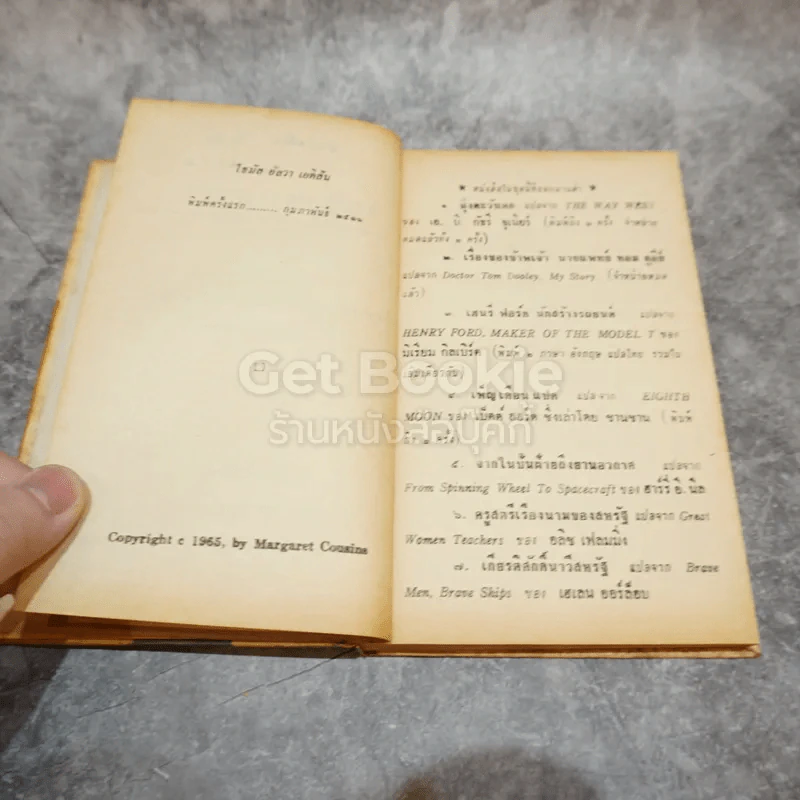 โธมัส อัลวา เอดิสัน
พิมพ์ครั้งแรก......... กุมภาพันธ์ ๒๕๑๑
Copyright c 1965, by Margaret Cousins
แปลจาก THE WAY WEST
ของ เอ. บี. กัธรี จูเนียร์ (พิมพ์ถึง ๑ ครั้ง จำหน่าย
หมดแล้วทั้ง ๑ ครั้ง)
๒. เรื่องของข้าพเจ้า นายแพทย์ ทอม ดูลีย์
แปลจาก Doctor Tom Dooley, My Story (จำหน่ายหมด
แล้ว)
๓. เฮนรี่ ฟอร์ด นักสร้างรถยนต์ แปลจาก
HENRY FORD, MAKER OF THE MODEL T ของ
มิเรียม กิลเบิร์ต (พิมพ์ ๒ ภาษา อังกฤษ แปลไทย รวมใน
เล่มเดียวกัน)
แปลจาก EIGHTH
MOON ของ เบ็ตต์ ลอร์ด ซึ่งเล่าโดย ซานซาน (พิมพ์
๕. จากไนปั่นด้ายถึงยานอวกาศ แปลจาก
From Spinning Wheel To Spacecraft ของ ฮาร์รี่ อี. นีล
๖. ครูสตรีเรืองนามของสหรัฐ แปลจาก Great
Women Teachers ของ อลิช เฟลมมิ่ง
๗. เกียรติศักดิ์นาวีสหรัฐ แปลจาก Brave
Men, Brave Ships ของ เฮเลน ออร์ล็อบ
Get Bookie
ร้านหนังสือบุคกี้